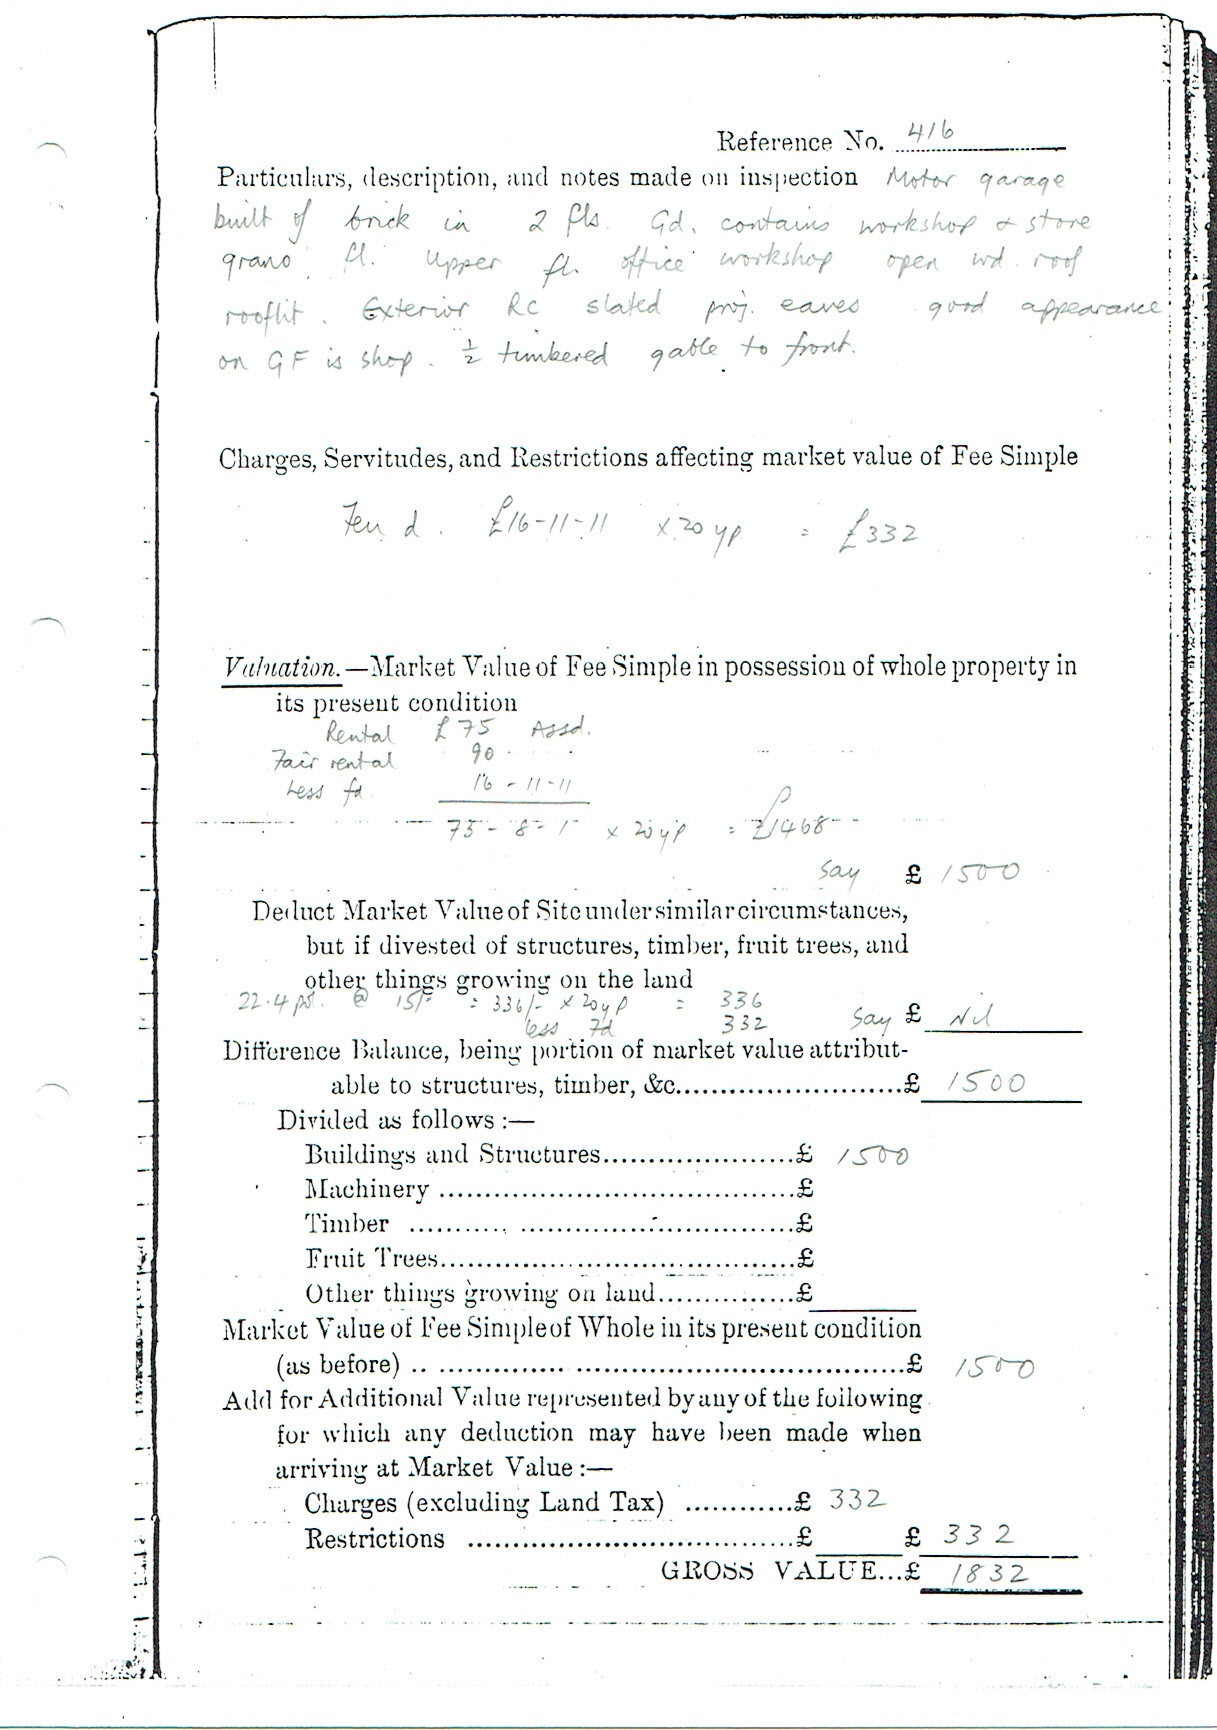 Reference No. 416
Particulars, description, and notes made on inspection Motor garage
built of brick in 2 fls. Gd. contains workshop & store
grano fl. Upper fl. office workshop open wd. roof
rooflit. Exterior RC slated proj. eaves good appearance
on GF is shop. ½ timbered gable to front.
Charges, Servitudes, and Restrictions affecting market value of Fee Simple
Feu d. £16-11-11 x 20 yp = £332
Valuation.—Market Value of Fee Simple in possession of whole property in
its present condition
Rental £75 Assd.
Fair rental 90
Less fd. 16-11-11
73-8-1 x 20 yp = £1468
Say £ 1500
Deduct Market Value of Site under similar circumstances,
but if divested of structures, timber, fruit trees, and
other things growing on the land
22.4 pol. @ 15/- = 336/- x 20 yp = 336
less fd 332 Say £ Nil
Difference Balance, being portion of market value attribut-
able to structures, timber, &c.........................£ 1500
Divided as follows :—
Buildings and Structures......................£ 1500
Machinery .........................................£
Timber ............................................£
Fruit Trees.........................................£
Other things growing on land................£
Market Value of Fee Simple of Whole in its present condition
(as before) .. ......................................................£ 1500
Add for Additional Value represented by any of the following
for which any deduction may have been made when
arriving at Market Value :—
Charges (excluding Land Tax) ............£ 332
Restrictions .....................................£ £ 332
GROSS VALUE...£ 1832